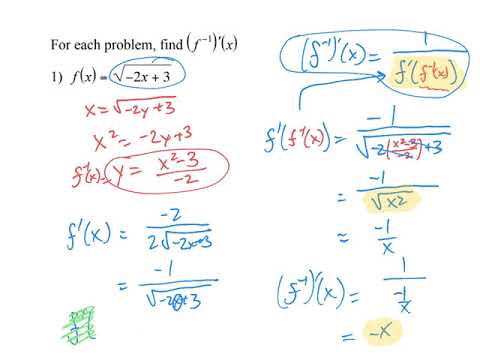 For each problem, find (f⁻¹)'(x)
1) f(x) = √(-2x + 3)
x = √(-2y+3)
x² = -2y+3
f⁻¹(x) = y = (x²-3)/(-2)
f'(x) = -2/(2√(-2x+3))
= -1/√(-2x+3)
(f⁻¹)'(x) = 1/(f'(f⁻¹(x)))
f'(f⁻¹(x)) = -1/√(-2((x²-3)/(-2))+3)
= -1/√(x²)
= -1/x
(f⁻¹)'(x) = 1/(-1/x)
= -x